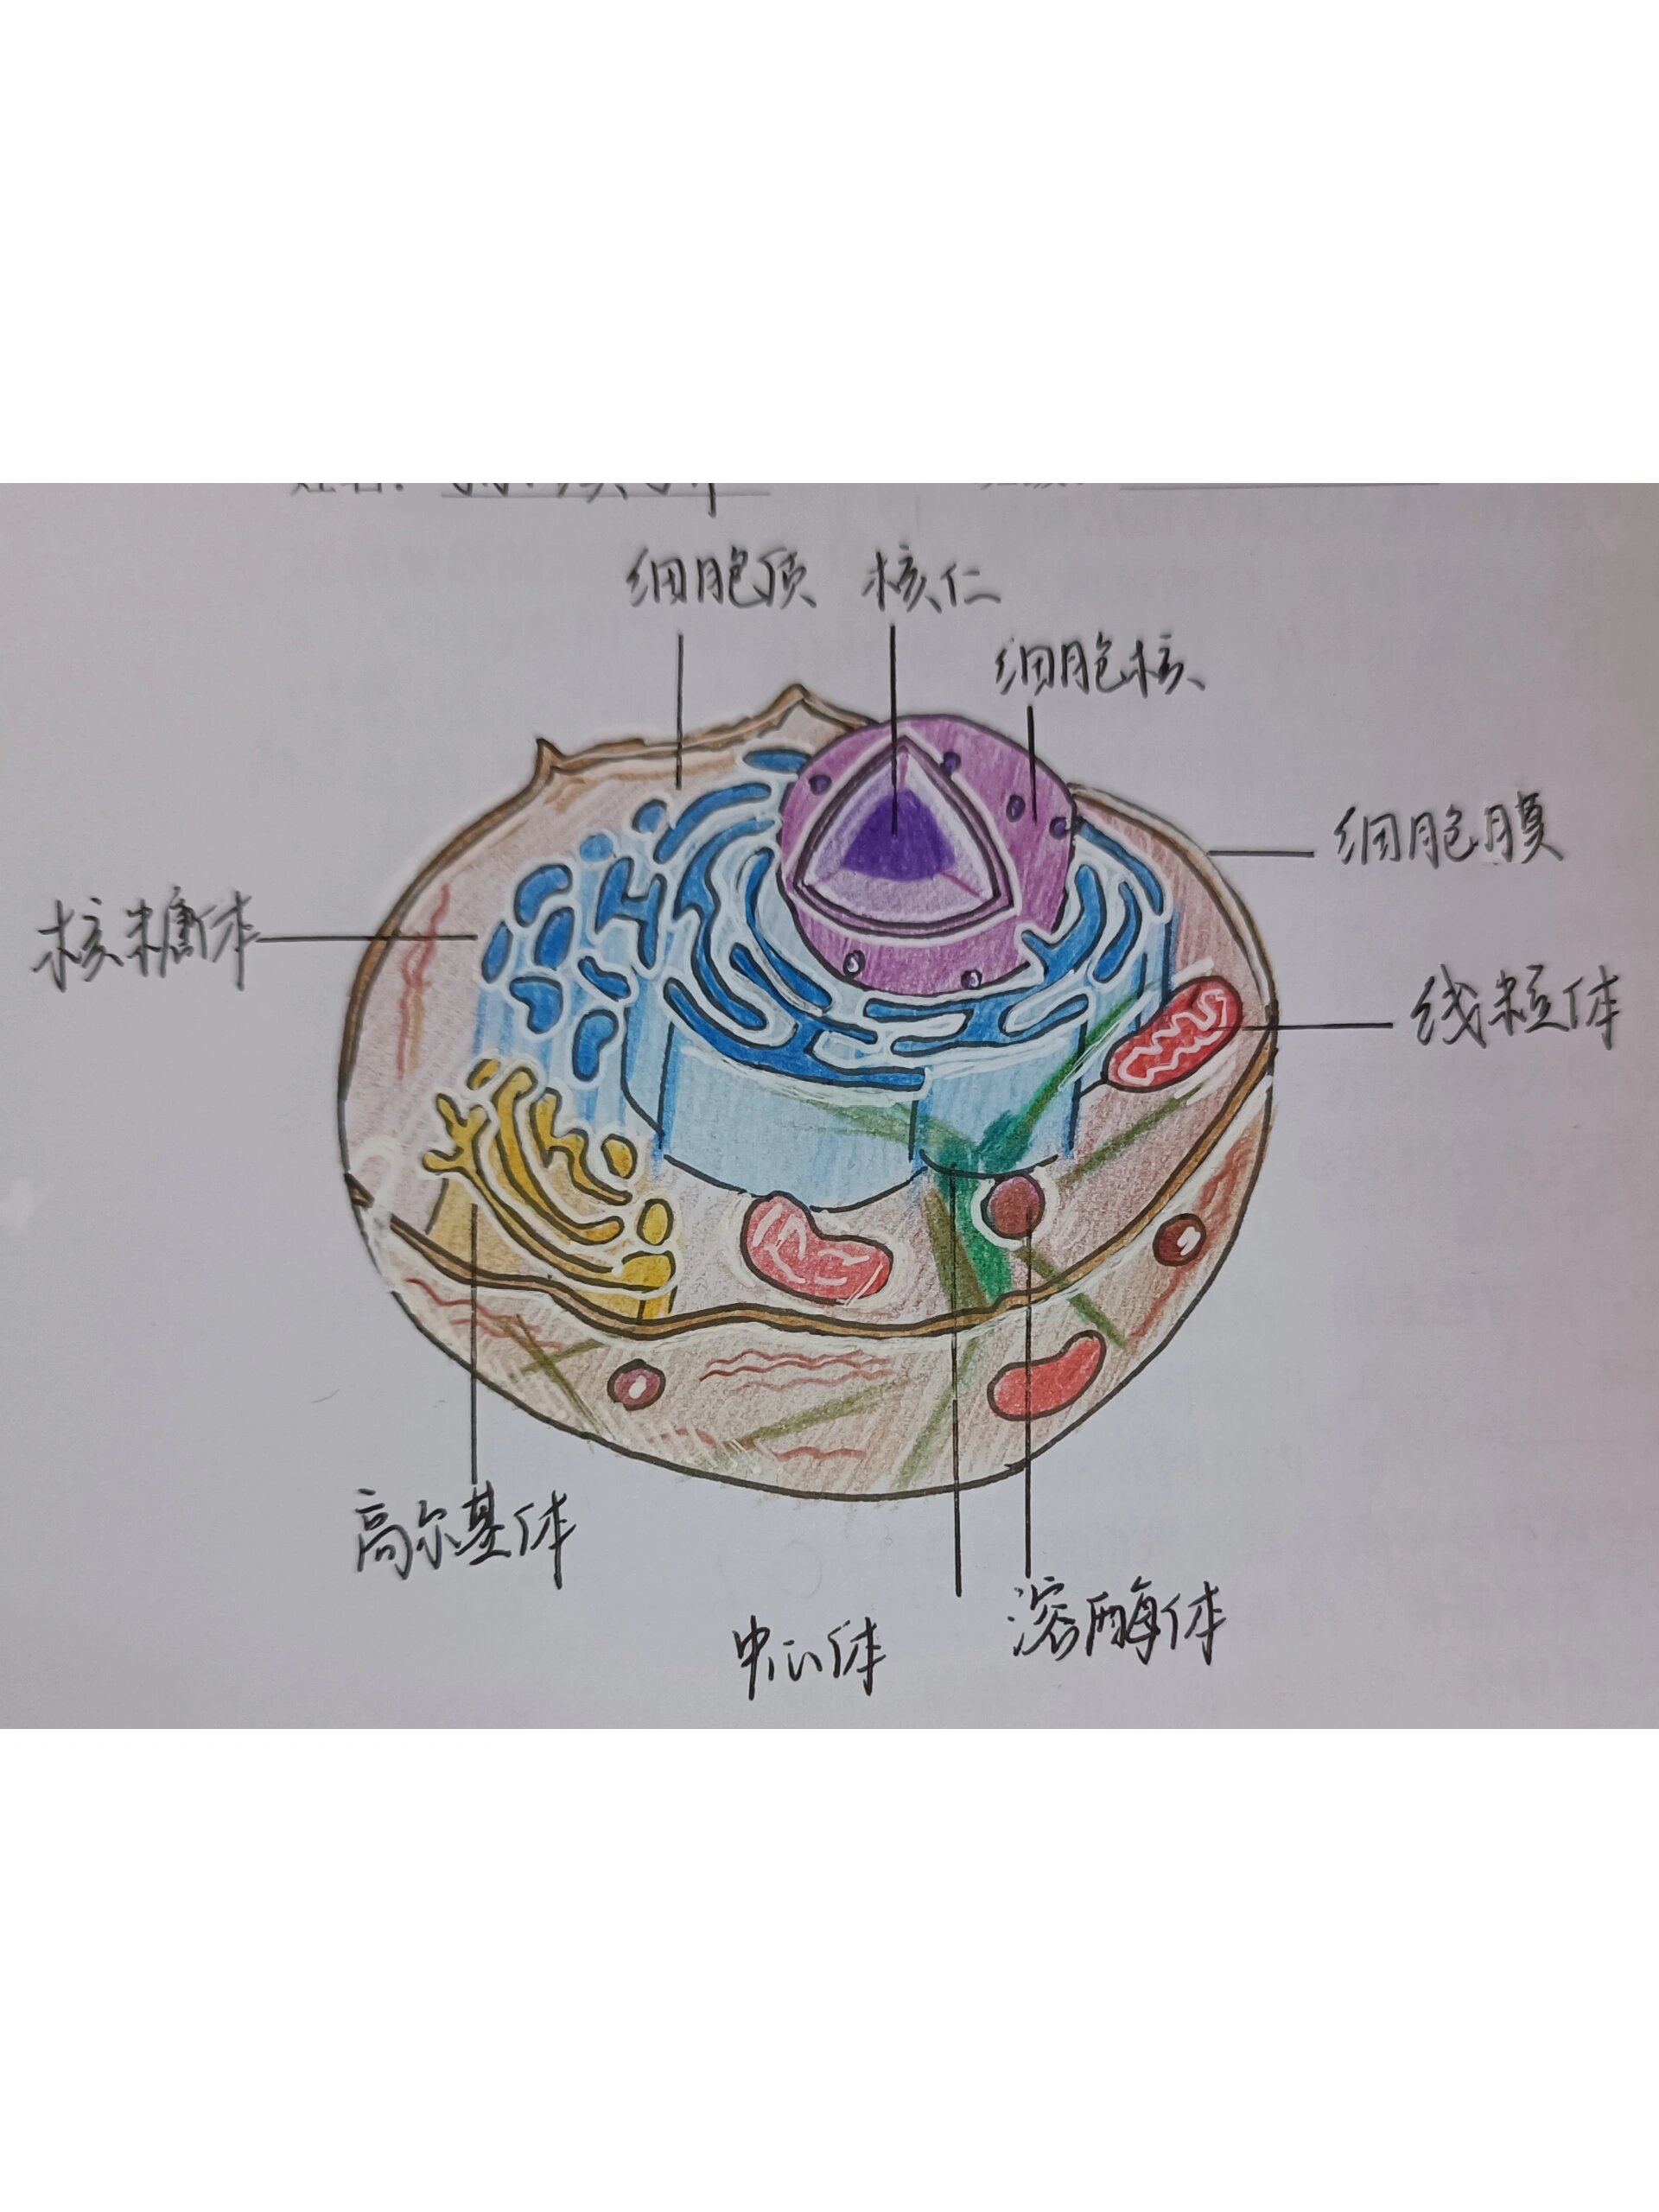 细胞质 核仁
细胞核
细胞膜
核糖体
线粒体
高尔基体
中心体
溶酶体